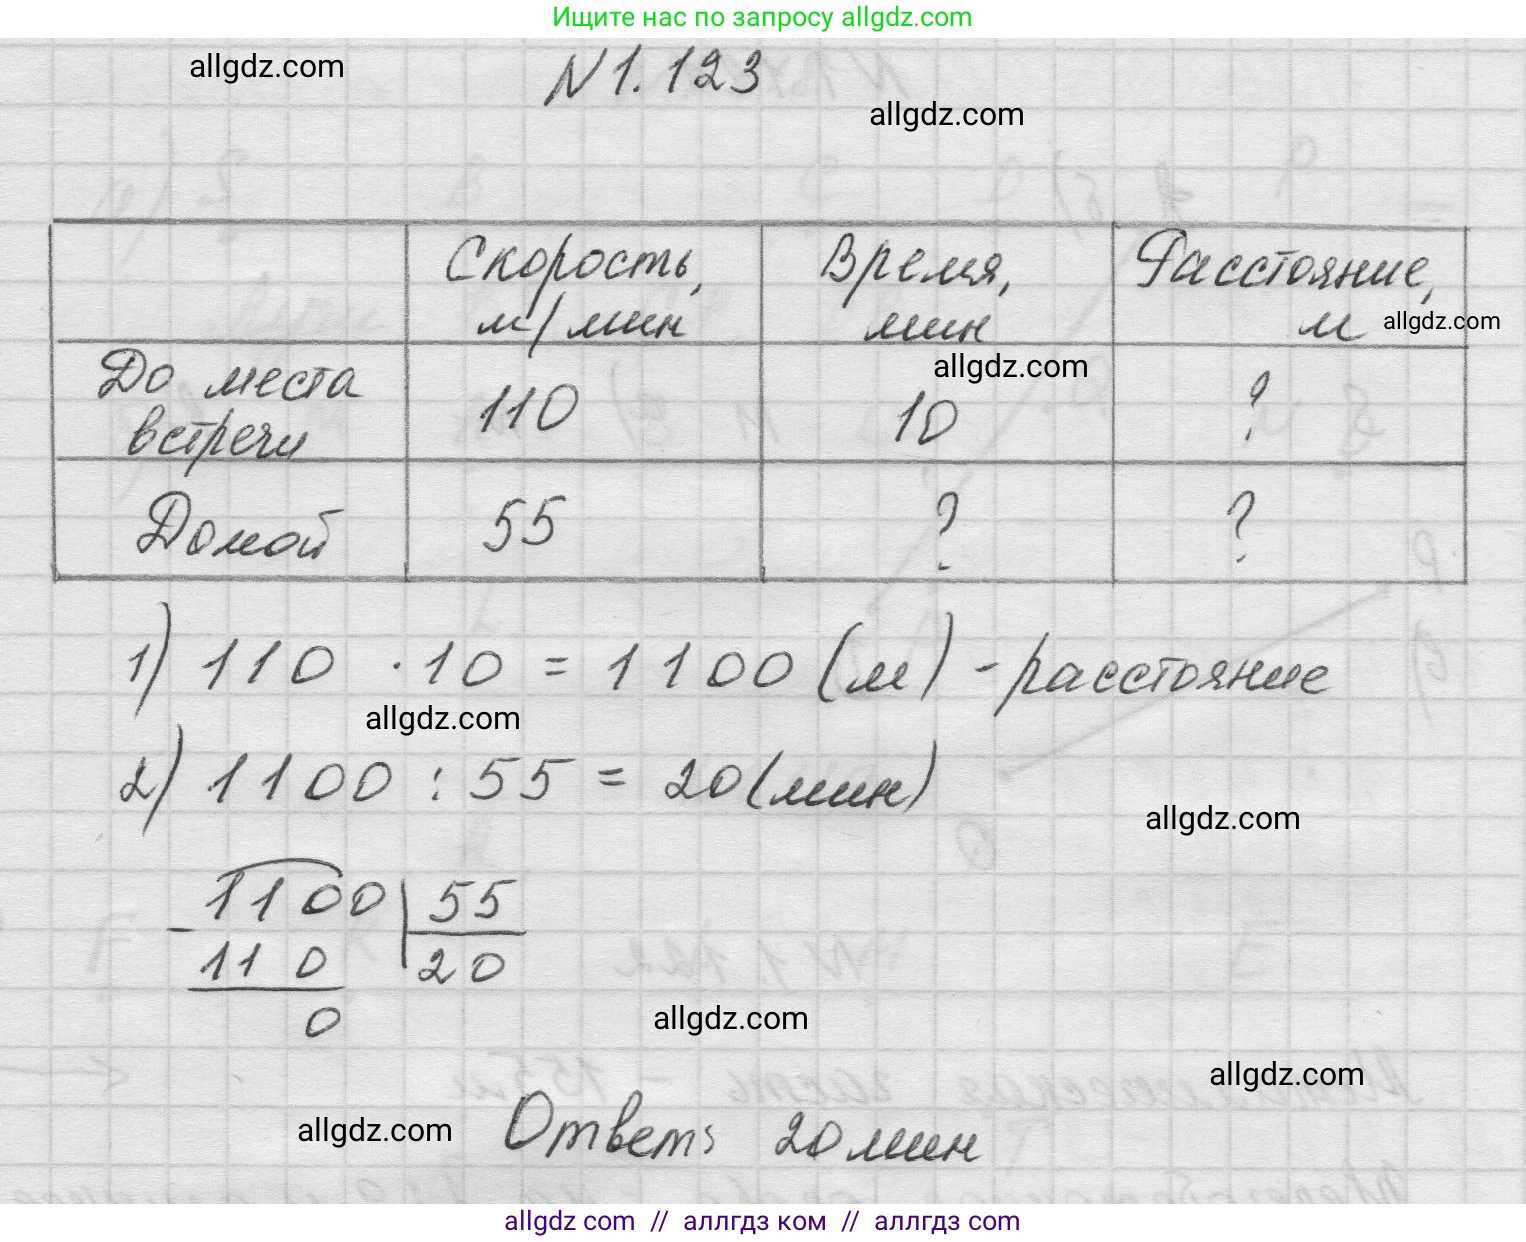 Ищите нас по запросу allgdz.com
allgdz.com
N 1.123
allgdz.com
Скорость, м/мин
Время, мин
Расстояние, м
allgdz.com
До места встречи
110
10
?
allgdz.com
Домой
55
?
?
1) 110 · 10 = 1100 (м) - расстояние
allgdz.com
2) 1100 : 55 = 20 (мин)
allgdz.com
1100 | 55
- 110 | 20
0
allgdz.com
allgdz.com
allgdz.com
Ответ: 20 мин
allgdz com // аллгдз ком // аллгдз com